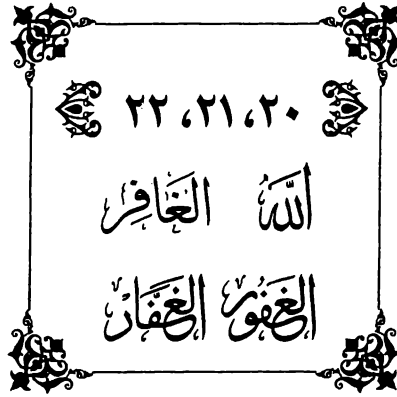 ٢٠، ٢١، ٢٢
اللَّهُ الغَافِر
الغَفُور الغَفَّارُ